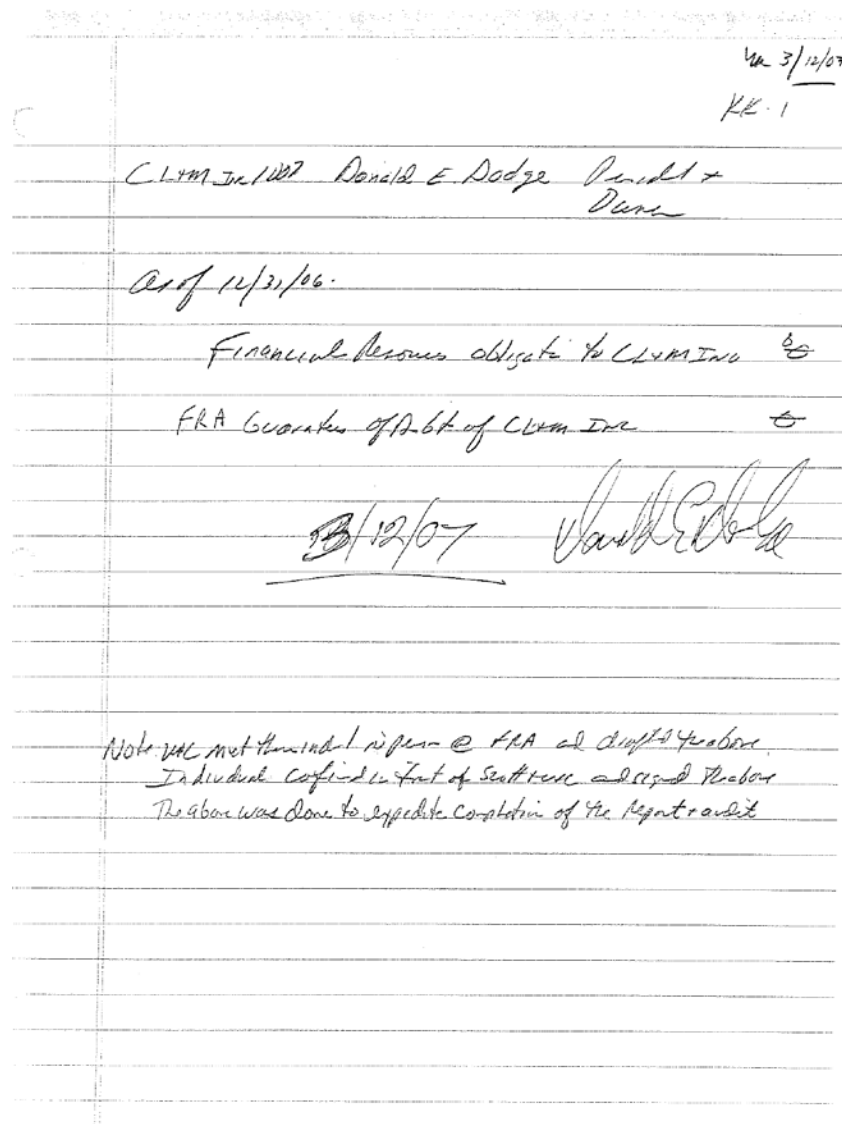 3/12/07
KK-1
Donald E Dodge
Owner
As of 12/31/06.
Financial obligate to CLYM Inc
FRA Guarantees of Debt of CLYM Inc
3/12/07 Donald E Dodge
Note: met in person @ FRA and drafted the above.
Individual confirmed in front of Scott and signed the above
The above was done to expedite completion of the report + audit